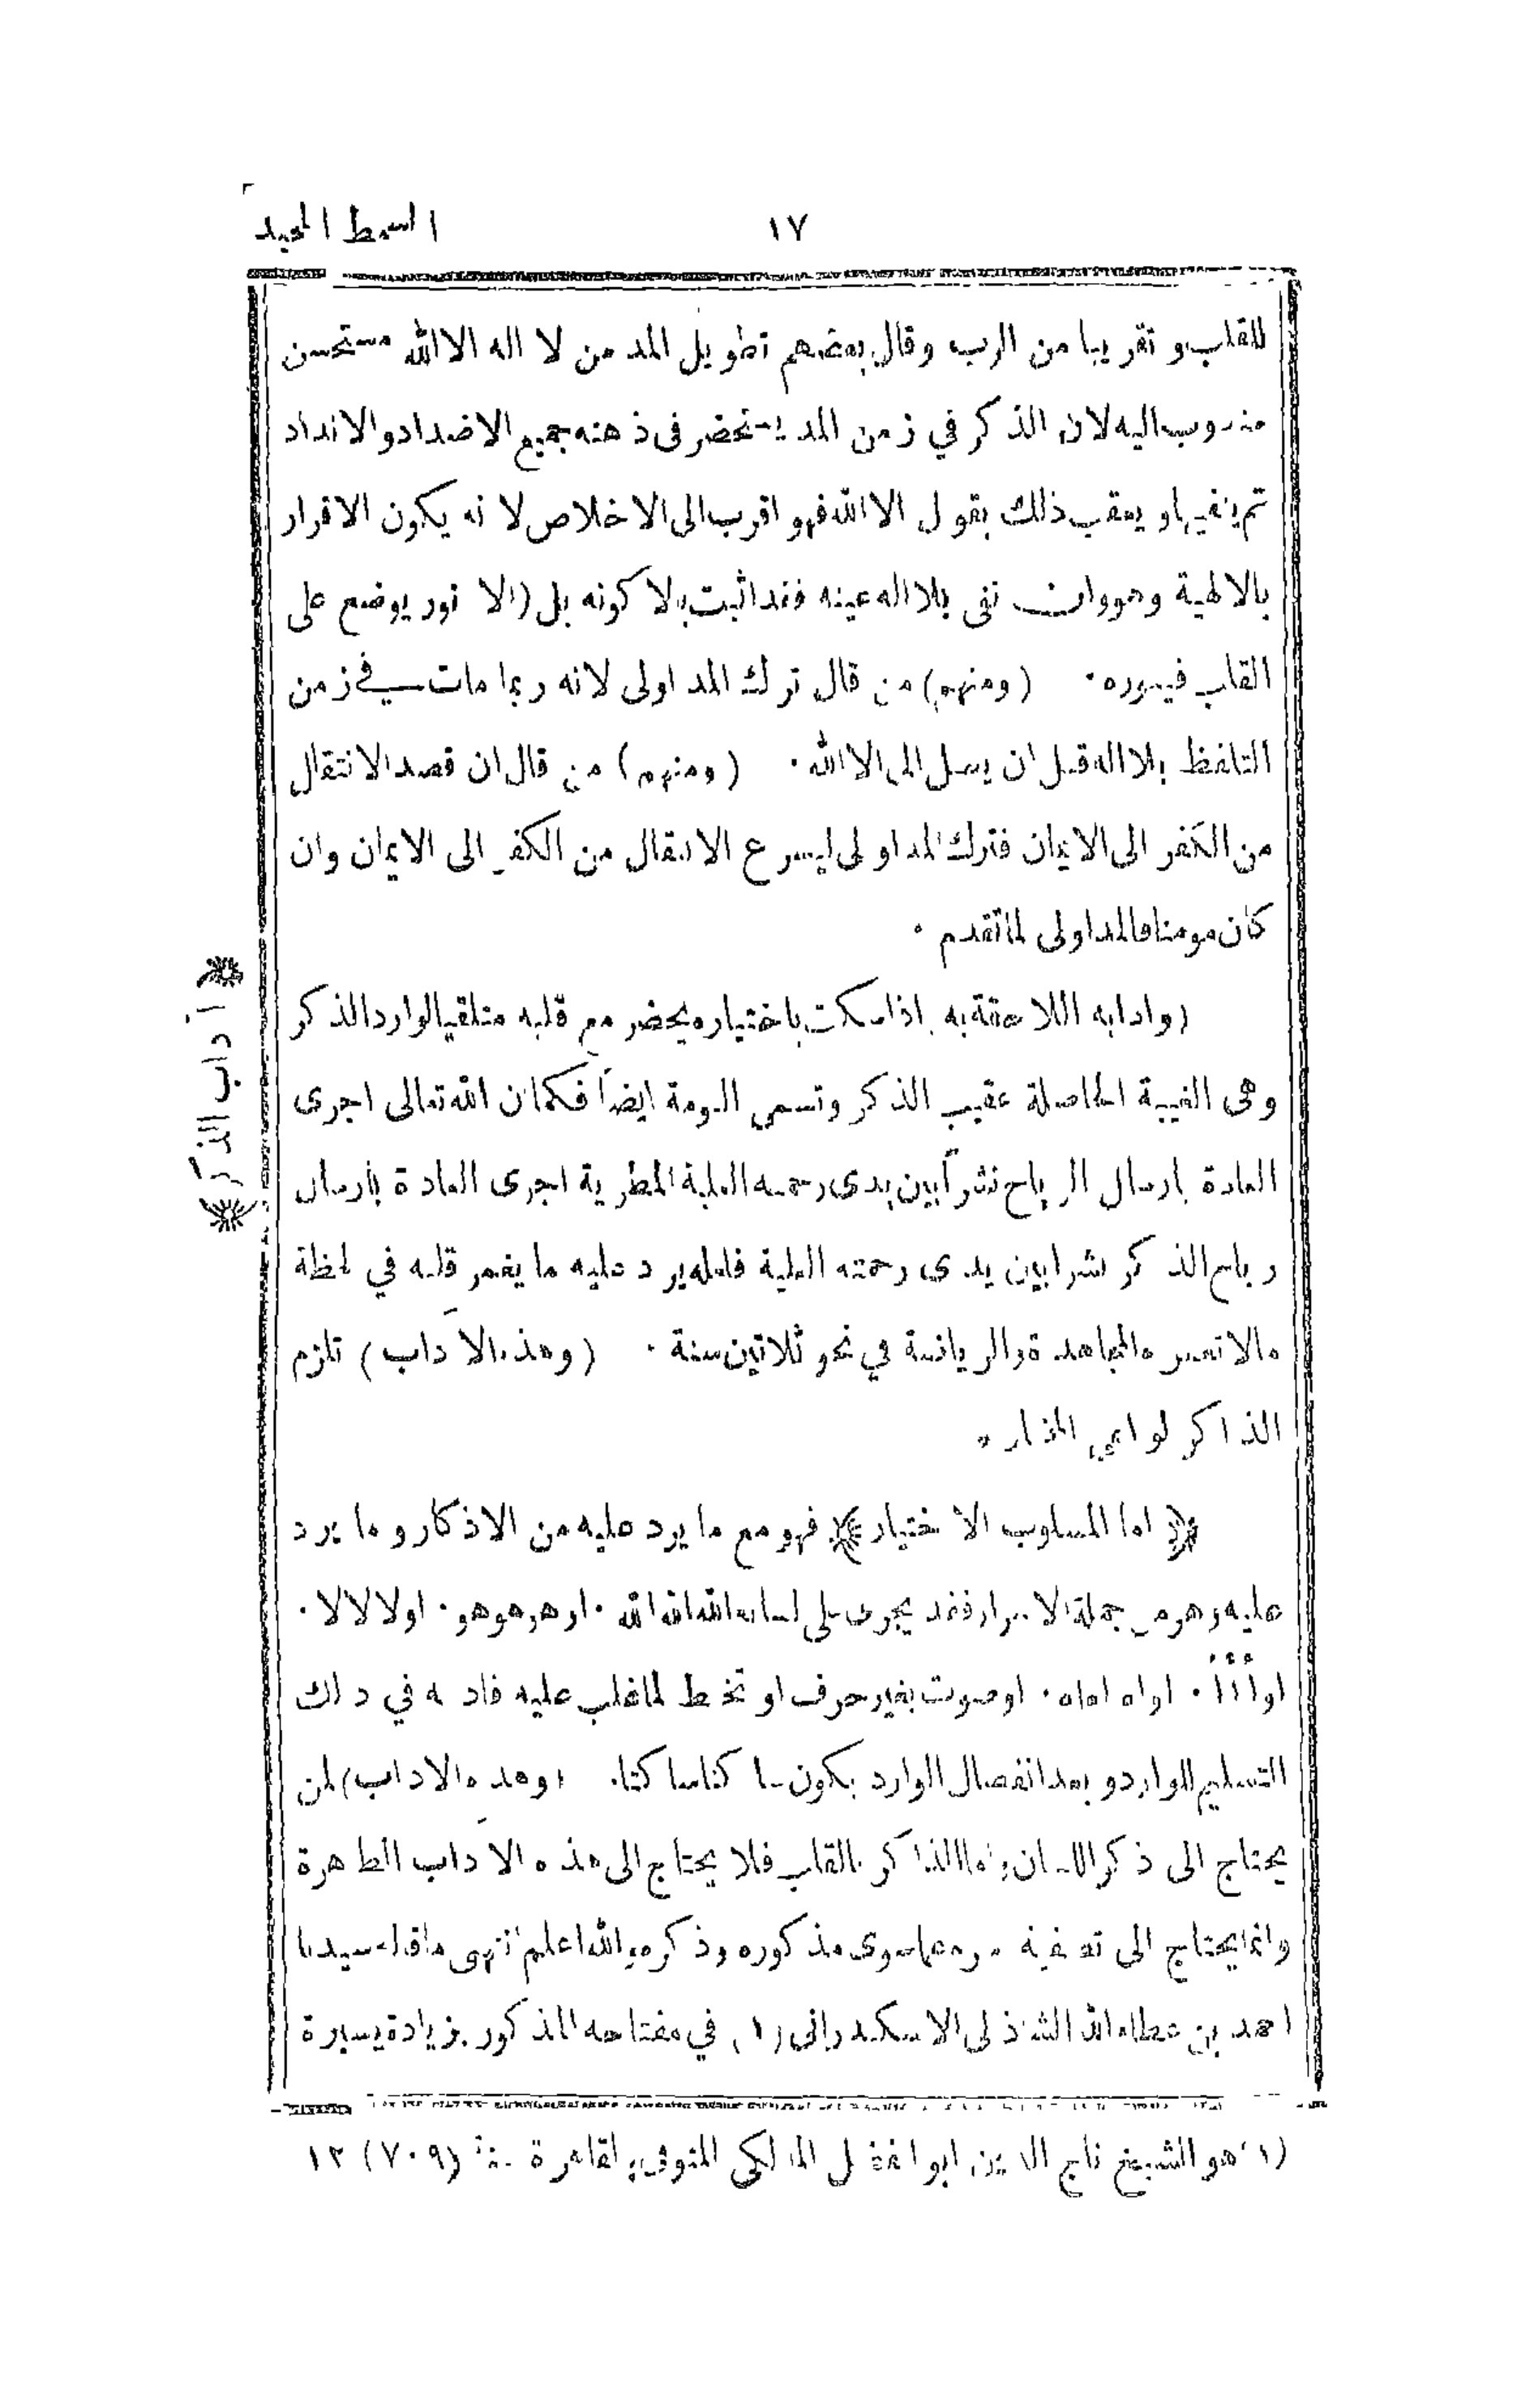 السمط المجيد
١٧
للقلب و تقريبا من الرب وقال بعضهم تطويل المد من لا اله الا الله مستحسن
مندوب اليه لان الذكر في زمن المد يستحضر فى ذهنه جميع الاضداد والانداد
ثم ينفيها و يعقب ذلك بقول الا الله فهو اقرب الى الاخلاص لا نه يكون الاقرار
بالالهية وهو وان نفى بلا اله عينه فقد اثبت بالا كونه بل (الا نور يوضع على
القلب فينوره ٠ (ومنهم) من قال ترك المد اولى لانه ربما مات في زمن
التلفظ بلا اله قبل ان يصل الى الا الله ٠ (ومنهم) من قال ان قصد الانتقال
من الكفر الى الايمان فترك المد او لى ليسرع الانتقال من الكفر الى الايمان وان
كان مومنا فالمد اولى لما تقدم ٠
(وادابه اللاحقة به اذا سكت باختياره يحضر مع قلبه متلقيا لوارد الذكر
وهى الغيبة الحاصلة عقيب الذكر وتسمى النومة ايضاً فكما ان الله تعالى اجرى
العادة بارسال الرياح نشراً بين يدى رحمته العلية المطرية اجرى العادة بارسال
رياح الذكر نشرا بين يدى رحمته العلية فلعله يرد عليه ما يغمر قلبه في لحظة
مالا تعمره المجاهدة والرياضة في نحو ثلاثين سنة ٠ (وهذه الآداب) تلزم
الذاكر لواعي المختار ٠
اما المسلوب الاختيار فهو مع ما يرد عليه من الاذكار و ما يرد
عليه وهو من جملة الاسرار فقد يجرى على لسانه الله الله الله ٠ او هو هو هو ٠ او لا لا لا ٠
او أ أ أ ٠ او اه اه اه ٠ او صوت بغير حرف او تخبط لما غلب عليه فادبه في ذلك
التسليم للوارد و بعد انفصال الوارد يكون ساكنا ساكتا ٠ (وهذه الاداب) لمن
يحتاج الى ذكر اللسان و اما الذاكر بالقلب فلا يحتاج الى هذه الآداب الظاهرة
وانما يحتاج الى تصفية سره عما سوى مذكوره وذكره والله اعلم انتهى ما قاله سيدنا
احمد بن عطاء الله الشاذلى الاسكندرانى (١) في مفتاحه المذكور بزيادة يسيرة
آداب الذكر
(١) هو الشيخ تاج الدين ابو الفضل المالكى المتوفى بالقاهرة سنة (٧٠٩) ١٢